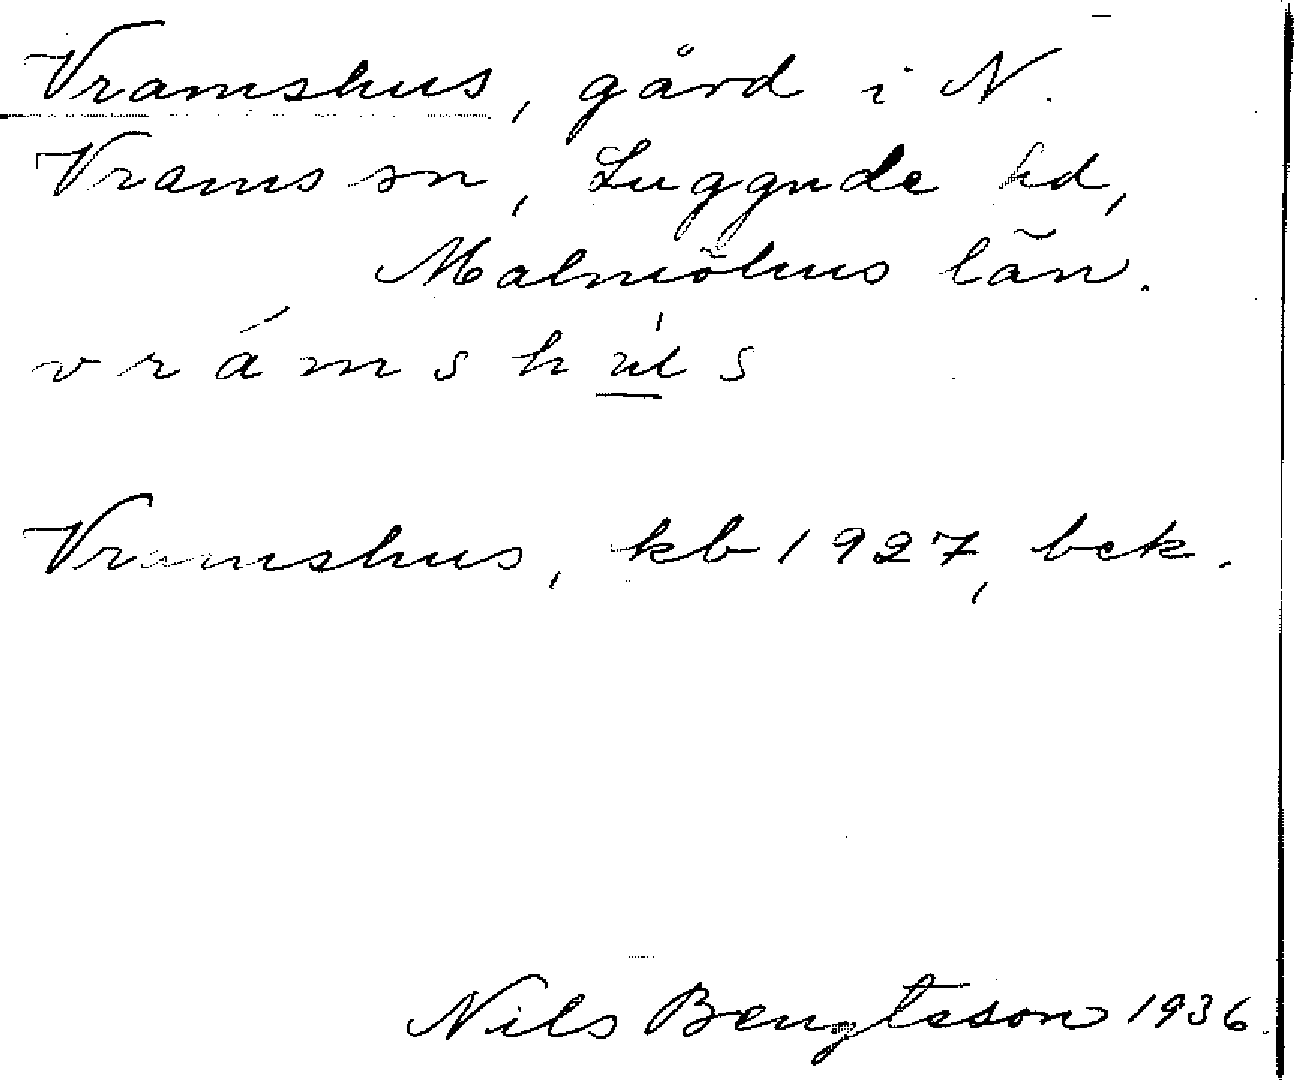 Vramshus, gård i N.
Vrams sn, Luggude hd,
Malmöhus län.
vrámshu̲s
Vramshus, kb 1927, bek.
Nils Bengtsson 1936.